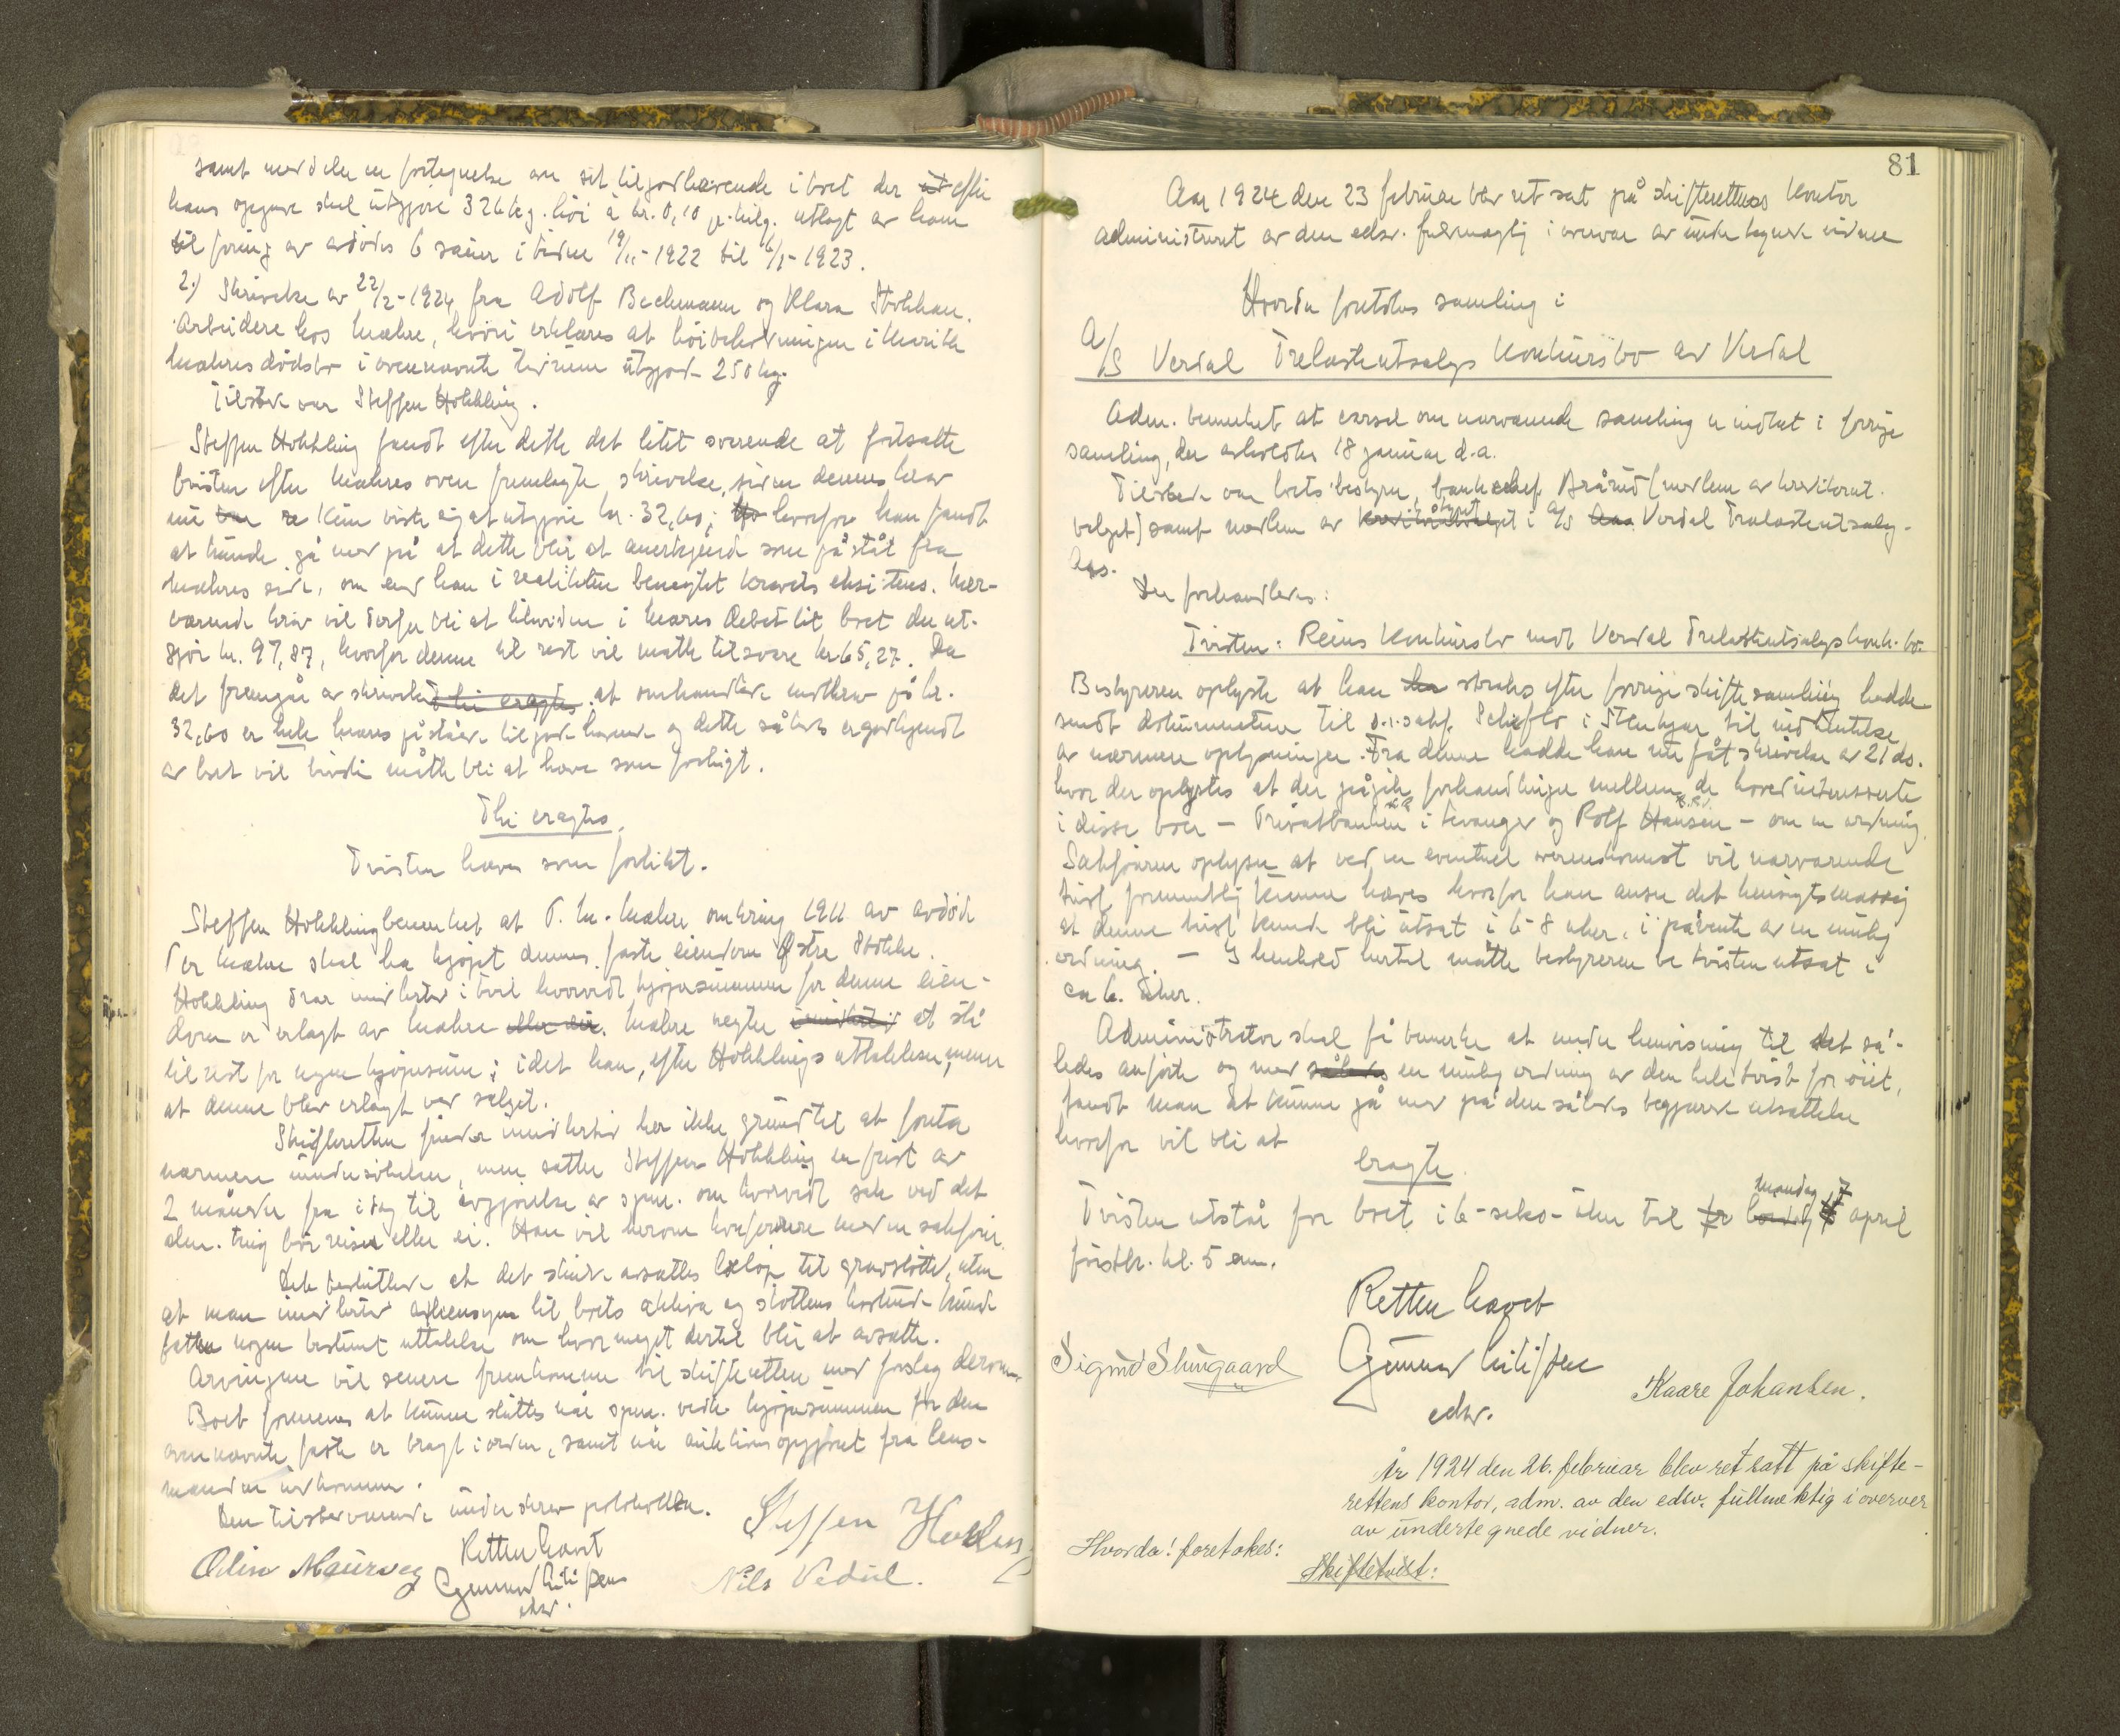 samt meddeler en fortegnelse om sit tilgodehavende i boet der efter
hans opgave skal utgjøre 326 kg. høi à kr. 0,10 pr. kilg. utlagt av ham
til foring av avdødes 6 sauer i tiden 19/11-1922 til 6/1-1923.
2.) Skrivelse av 22/2-1924 fra Adolf Bachmann og Klara Stokkan.
Arbeidere hos Mæhre, hvori erklæres at høibeholdningen i Marith
Mæhres dødsbo i ovennævnte tidsrum utgjorde 250 kg.
Tilstede var Steffen Holkling.
Steffen Holkling fandt efter dette det litet svarende at fortsætte
tvisten efter Mæhres oven fremlagte skrivelse, siden dennes krav
nu kun viste sig at utgjøre kr. 32,60; hvorfor han fandt
at kunde gå med på at dette blir at anerkjende som påståt fra
Mæhres side, om end han i realiteten benegtet kravets eksistens. Nær-
værende krav vil derfor bli at likvidere i Mæres debet til boet der ut-
gjør kr. 97,87, hvorfor denne til rest vil måtte tilsvare kr 65,27. Da
det fremgår av skrivelsen at omhandlede motkrav på kr.
32,60 er hele Mæres påståede tilgodehavende og dette således er godkjendt
av boet vil tvisten måtte bli at hæve som forligt.
Thi eragtes
Tvisten hæves som forlikt.
Steffen Holkling bemerket at P. M. Mæhre omkring 1911 av avdøde
Per Mæhre skal ha kjøpt dennes faste eiendom Østre Stokke.
Holkling drar imidlertid i tvil hvorvidt kjøpesummen for denne eien-
dom er erlagt av Mæhre eller ei. Mæhre negter imidlertid at stå
til rest for nogen kjøpesum; idet han, efter Holklings uttalelser, mener
at denne blev erlagt ved salget.
Skifteretten finder imidlertid her ikke grund til at foreta
nærmere undersøkelser, men satte Steffen Holkling en frist av
2 måneder fra idag til avgjørelse av spm. om hvorvidt sak ved det
alm. ting bør reises eller ei. Han vil herom konferere med en sakfører.
Det besluttedes at det skulde avsættes beløp til gravstøtte, uten
at man imidlertid av hensyn til boets aktiva og støttens kostende kunde
fatte nogen bestemt uttalelse om hvor meget dertil blir at avsætte.
Arvingene vil senere fremkomme til skifteretten med forslag derom.
Boet formenes at kunne sluttes når spm. vedr. kjøpesummen for den
ovennævnte faste er bragt i orden, samt når auktionsopgjøret fra lens-
manden indkommer.
Den tilstedeværende underskrev protokollen.
Retten hævet
Steffen Holkling
Odin Maurveg
Gunnar
edsv.
Nils Vedul.
81
Aar 1924 den 23 februar blev ret sat på skifterettens kontor
administrert av den edsv. fuldmægtig i overvær av undertegnede vidner
Hvorda foretokes samling i
A/S Verdal Trelastutsalgs konkursbo av Verdal
Adm. bemerket at varsel om nærværende samling er indtat i forrige
samling, der avholdtes 18 januar d.a.
Tilstede var boets bestyrer, banksjef Brårud (medlem av kreditorut-
valget) samt medlem av styret i A/S Verdal Trælastutsalg -
Aas.
Der forhandledes:
Tvisten: Reins konkursbo mot Verdal Trelastutsalgs konk. bo.
Bestyreren oplyste at han straks efter forrige skiftesamling hadde
sendt dokumenterne til o.r.sakf. Schiefloe i Stenkjær til indhentelse
av nærmere oplysninger. Fra denne hadde han nu fåt skrivelse av 21 ds.
hvor der oplystes at der pågik forhandlinger mellem de hovedinteresserte
i disse boer - Privatbanken i Levanger og Rolf Hansen - om en ordning.
Sakføreren oplyser at ved en eventuel overenskomst vil nærværende
tvist formentlig kunne hæves hvorfor han anser det hensigtsmæssig
at denne tvist kunde bli utsat i 6-8 uker, i påvente av en mulig
ordning. - I henhold hertil måtte bestyreren be tvisten utsat i
ca 6. uker.
Administrator skal få bemerke at under henvisning til det så-
ledes anførte og med en mulig ordning av den hele tvist for øiet,
fandt man at kunne gå med på den således begjærede utsættelse
hvorfor vil bli at
eragte.
Tvisten utstår for boet i 6-seks-uker til mandag 7 april
førstk. kl. 5 em.
Retten hævet
Sigurd Slungaard
Gunnar
edsv.
Kaare Johansen.
År 1924 den 26. februar blev ret satt på skifte-
rettens kontor, adm. av den edsv. fullmektig i overvær
av undertegnede vidner.
Hvorda! foretokes:
Skiftetvist: